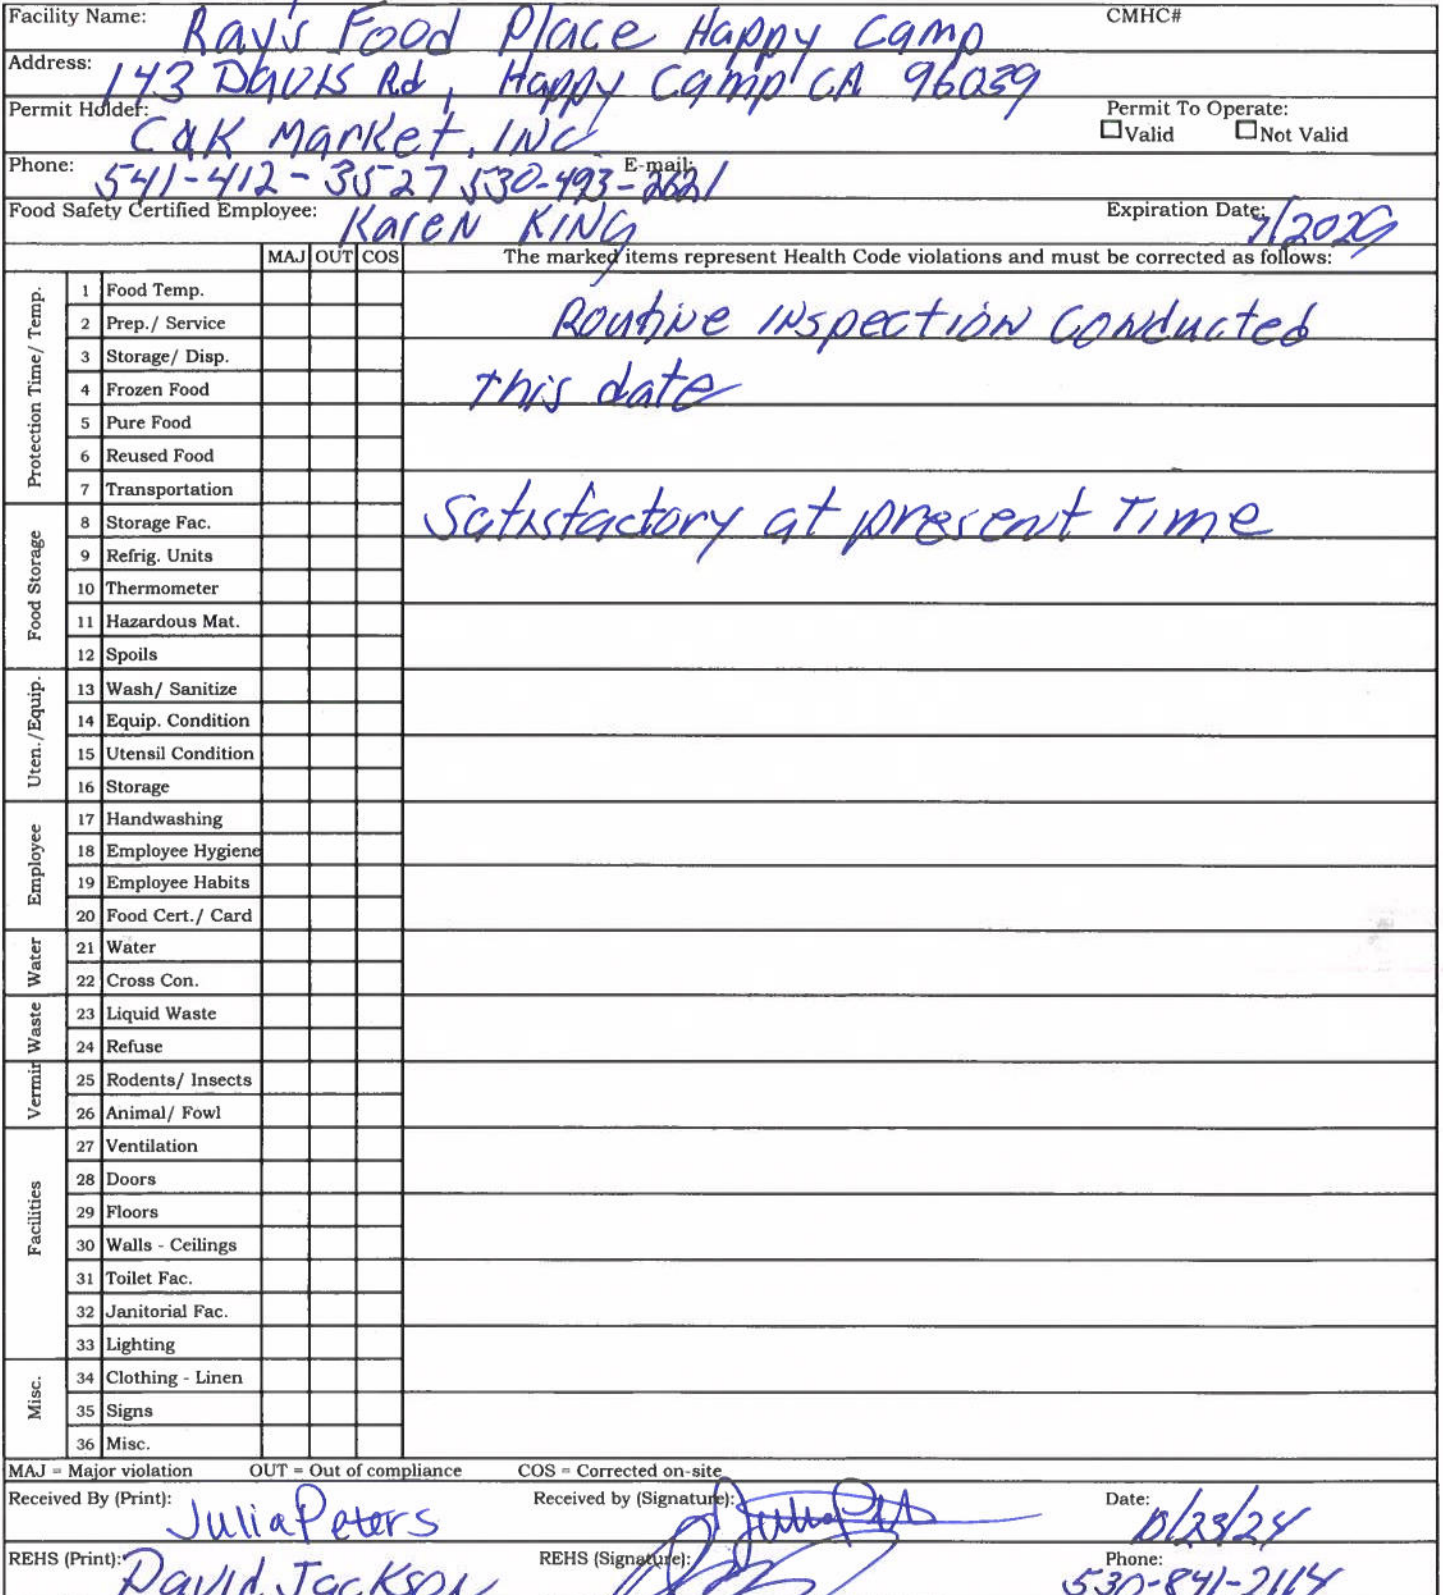 Facility Name: Ray's Food Place Happy Camp CMHC#
Address: 143 Davis Rd, Happy Camp CA 96039
Permit Holder: C&K Market, INC Permit To Operate:
☐Valid ☐Not Valid
Phone: 541-412-3527 530-493-2621 E-mail:
Food Safety Certified Employee: Karen King Expiration Date: 7/2029
MAJ OUT COS The marked items represent Health Code violations and must be corrected as follows:
Protection Time/ Temp.
1 Food Temp.
2 Prep./ Service Routine inspection conducted
3 Storage/ Disp.
4 Frozen Food This date
5 Pure Food
6 Reused Food
7 Transportation
Food Storage
8 Storage Fac. Satisfactory at present Time
9 Refrig. Units
10 Thermometer
11 Hazardous Mat.
12 Spoils
Uten./Equip.
13 Wash/ Sanitize
14 Equip. Condition
15 Utensil Condition
16 Storage
Employee
17 Handwashing
18 Employee Hygiene
19 Employee Habits
20 Food Cert./ Card
Water
21 Water
22 Cross Con.
Waste
23 Liquid Waste
24 Refuse
Vermin
25 Rodents/ Insects
26 Animal/ Fowl
Facilities
27 Ventilation
28 Doors
29 Floors
30 Walls - Ceilings
31 Toilet Fac.
32 Janitorial Fac.
33 Lighting
Misc.
34 Clothing - Linen
35 Signs
36 Misc.
MAJ = Major violation OUT = Out of compliance COS = Corrected on-site
Received By (Print): Julia Peters Received by (Signature): Date: 10/23/24
REHS (Print): David Jackson REHS (Signature): Phone: 530-841-2114